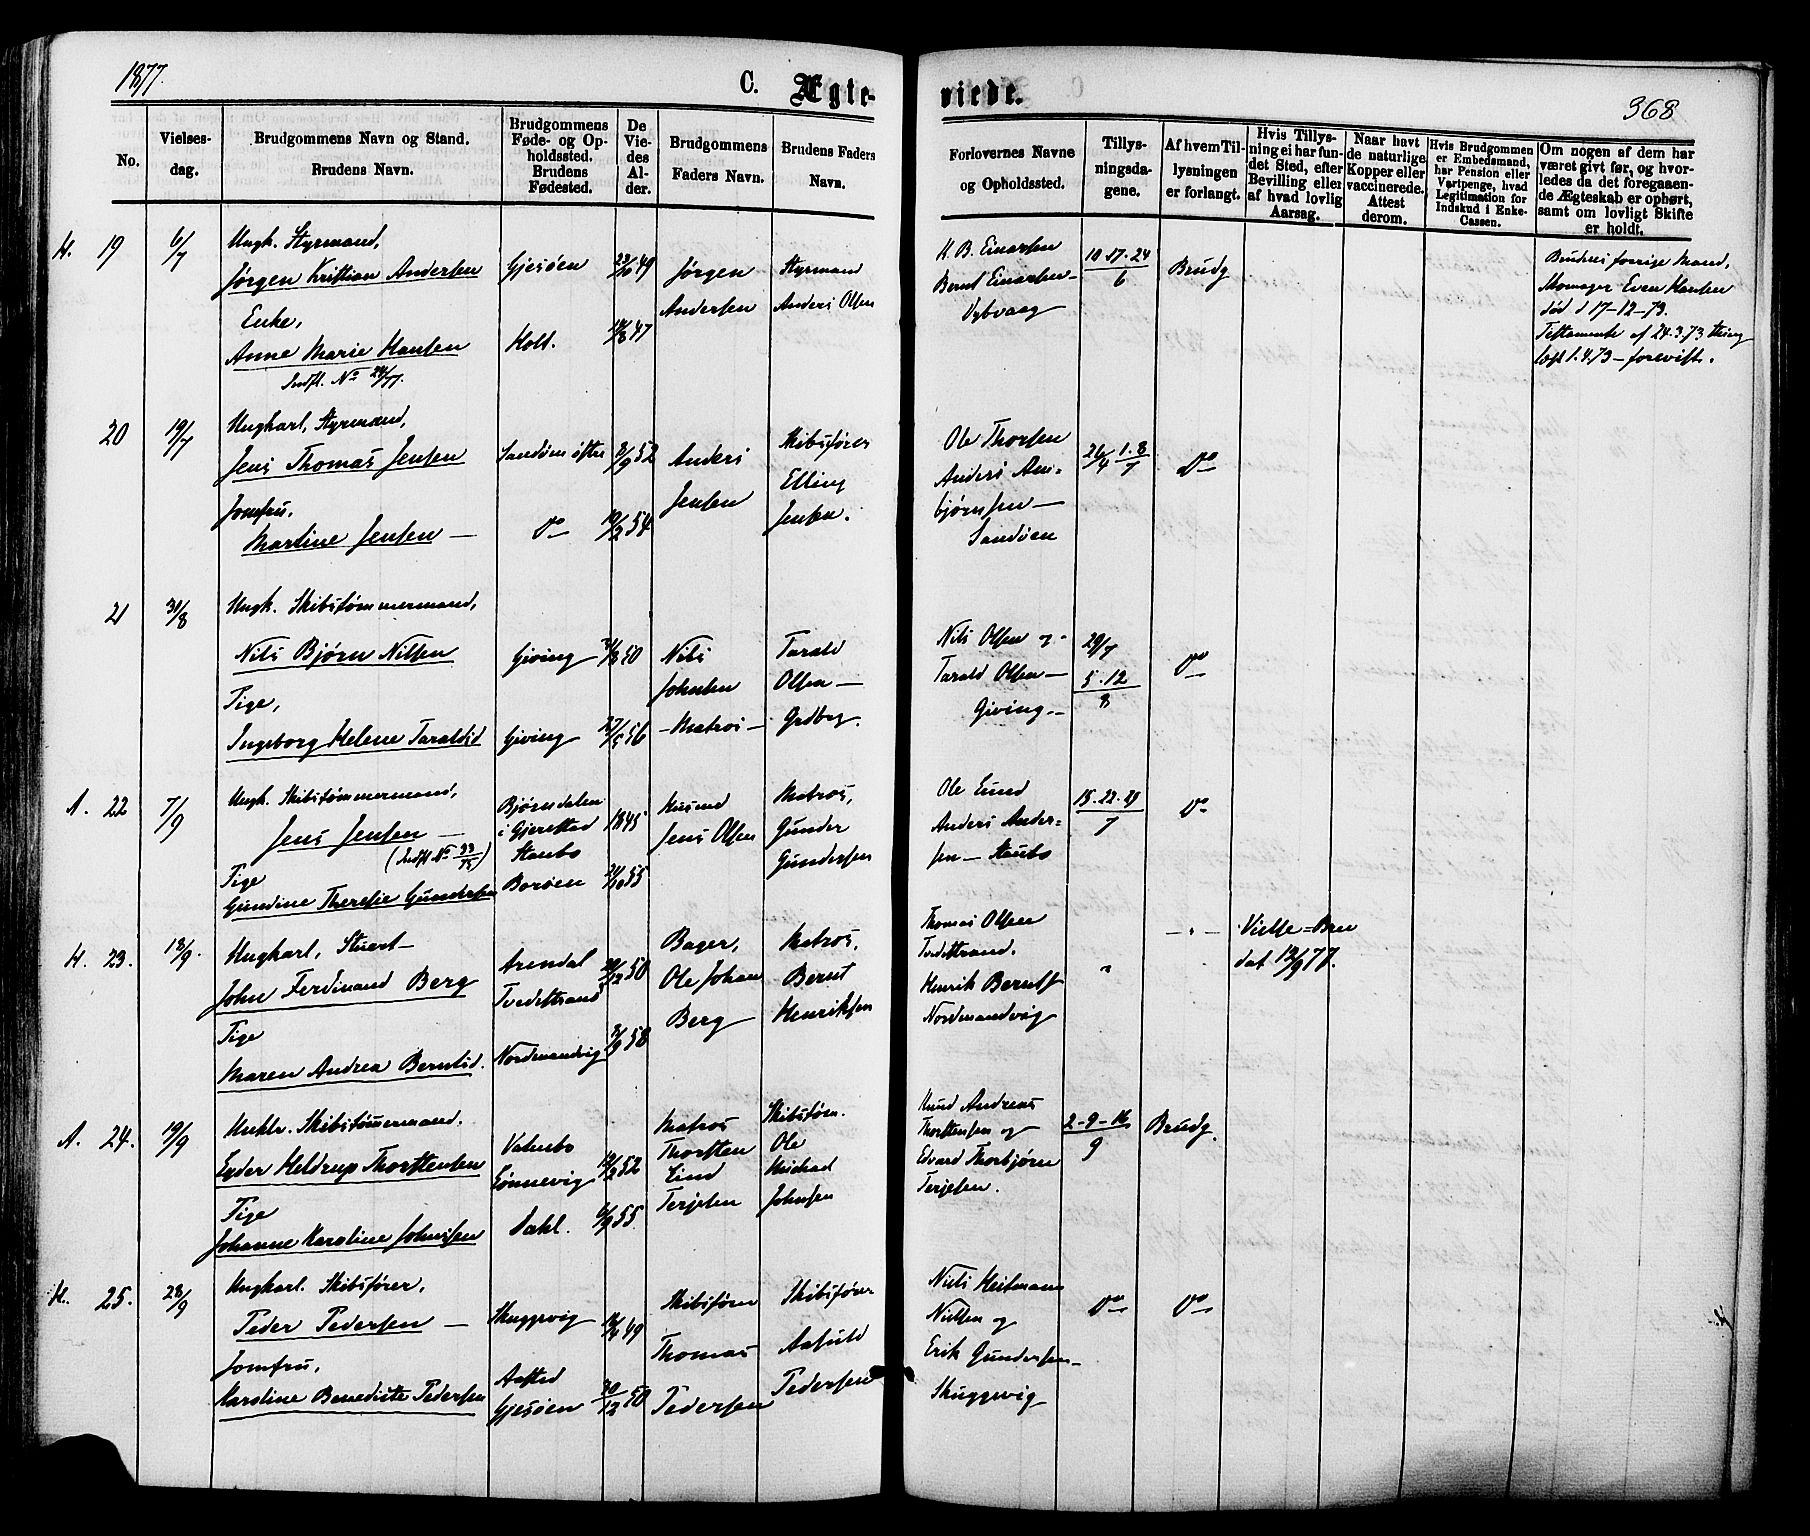 1877.
C. Ægte-
viede.
368
No.
Vielses-
dag.
Brudgommens Navn og Stand.
Brudens Navn.
Brudgommens
Føde- og Op-
holdssted.
Brudens
Fødested.
De
Vie-
des
Al-
der.
Brudgommens
Faders Navn.
Brudens Faders
Navn.
Forlovernes Navne
og Opholdssted.
Tillys-
ningsda-
gene.
Af hvem Til-
lysningen
er forlangt.
Hvis Tillys-
ning ei har fun-
det Sted, efter
Bevilling eller
af hvad lovlig
Aarsag.
Naar havt
de naturlige
Kopper eller
vaccinerede.
Attest
derom.
Hvis Brudgommen
er Embedsmand,
har Pension eller
Vartpenge, hvad
Legitimation for
Indskud i Enke-
Cassen.
Om nogen af dem har
været givt før, og hvor-
ledes da det foregaaen-
de Ægteskab er ophørt,
samt om lovligt Skifte
er holdt.
H. 19
6/7
Ungk. Styrmand,
Jørgen Kristian Andersen
Enke,
Anne Marie Hansen
Indfl. No 24/77.
Gjesøen
Holt.
23/10 49
47
Jørgen
Andersen
Styrmand
Anders Olsen
K. B. Einarsen
Bernt Einarsen
Dybvaag
10.17.24
6
Brudg
Brudens forrige Mand,
Skomager Even Hansen
død d 17-12-73.
Testamente af 24.3.73 thing
læst 1.4.73 – forevist.
20
19/7
Ungkarl, Styrmand,
Jens Thomas Jensen
Jomfru,
Martine Jensen —
Sandøen østre
Do
2/9 52
10/2 54
Anders
Jensen
Skibsfører
Elling
Jensen.
Ole Thorsen
Anders Am-
bjørnsen —
Sandøen
26/4 1.8/7
Do
21
31/8
Ungk. Skibstømmermand,
Nils Bjørn Nilsen
Pige,
Ingeborg Helene Taraldsd
Giving
Giving
50
27/5 56
Nils
Johnsen
– Matros –
Tarald
Olsen —
Gjdbey.
Nils Olsen og
Tarald Olsen —
Giving –
29/7
5.12
8
Do
A. 22
7/9
Ungk. Skibstømmermand,
Jens Jensen —
(Indfl No 33/75)
Pige
Gundine Theresie Gundersen
Bjørndalen
i Gjerestad
Staubo
Borøen
1845
21/10 55
Husmd
Jens Olsen
Matros,
Gunder
Gundersen
Ole Eund
Anders Ander-
sen – Staubo
15.22.29
7
Do
H. 23.
18/9.
Ungkarl, Stuert –
John Ferdinand Berg
Pige
Maren Andrea Berntsd.
Arendal
Tvedestrand
Nordmandvig
50
2/9 58
Bager,
Ole Johan
Berg
Matros,
Bernt
Henriksen
Thomas Olsen
Tvedestrand.
Henrik Bernts
Nordmandvig
"
– " –
Vielse = Brev
dat 12/9 77.
A. 24.
19/9
Unkkr. Skibstømmermand.
Eyder Heldrup Thorstensen
Pige
Johanne Karoline Johnsen
Vatnebo
Lønnevig
Dahl.
12/2 52
6/9 55.
Matros
Thorsten
Eind
Terjesen
Skibstøm.
Ole
Michael
Johnsen
Knud Andreas
Thorstensen og
Edvard Thorbjørn
Terjesen.
2-9-16
9
Brudg.
H. 25.
28/9
Ungkarl. Skibsfører,
Peder Pedersen —
Jomfru,
Karoline Benedicte Pedersen
Skuggevig
Aasted
Gjesøen
49
30/12 50
Skibsføm
Thomas
Pedersen
Skibsfører
Aasuld
Pedersen
Niels Heitmann
Nielsen og
Erik Gundersen –
Skuggevig
Do
Do